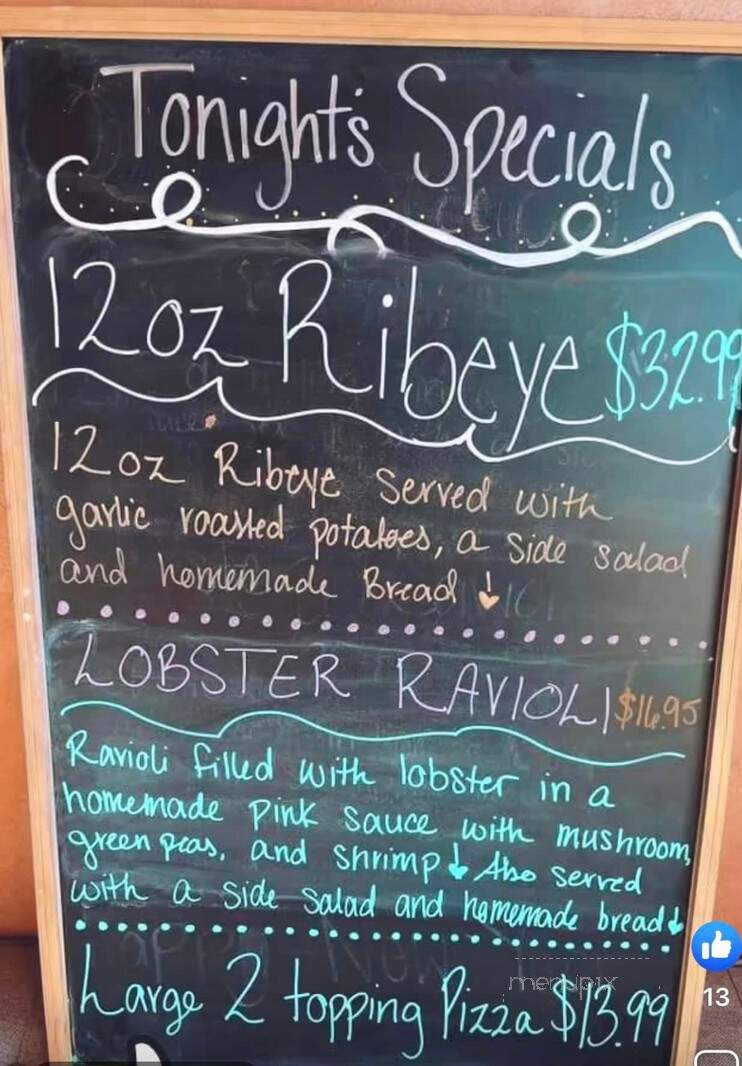 Tonight's Specials
12oz Ribeye $32.99
12oz Ribeye served with
garlic roasted potatoes, a side salad
and homemade Bread
LOBSTER RAVIOLI $16.95
Ravioli filled with lobster in a
homemade pink sauce with mushroom,
green peas, and shrimp Also served
with a side salad and homemade bread
Large 2 topping Pizza $13.99
menupix
13